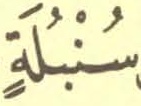 سُنْبُلَةٍ